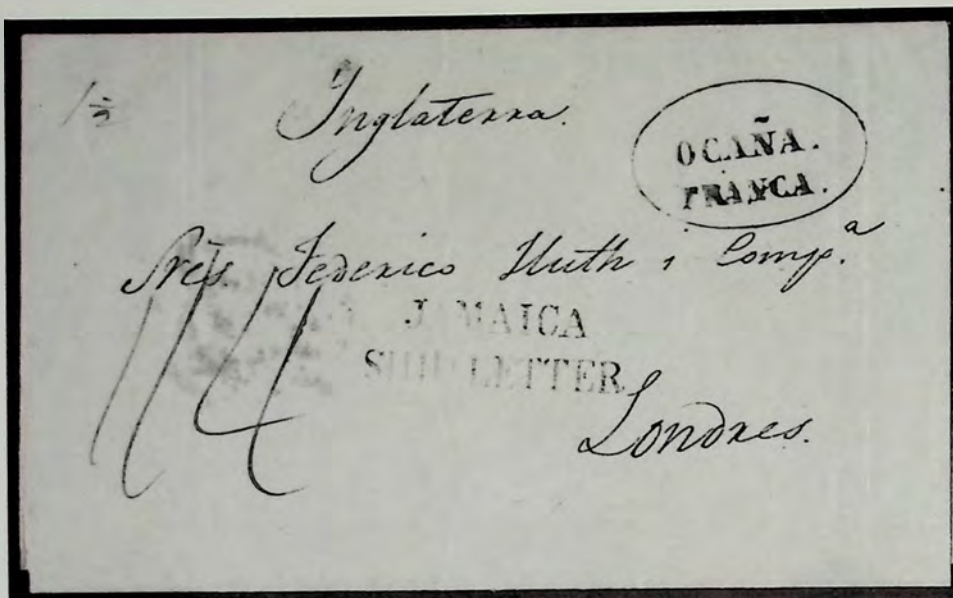 1/2
Inglaterra.
OCAÑA.
FRANCA.
Sres. Federico Huth i Compa.
JAMAICA
SHIP LETTER
Londres.